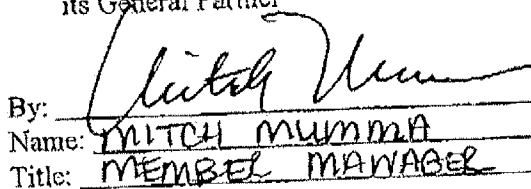 its General Partner
Mitch Mumma
By:
Name: MITCH MUMMA
Title: MEMBER MANAGER